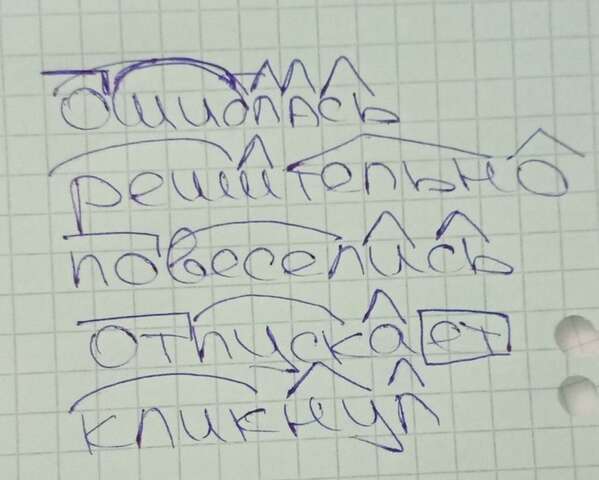 ошиблась
решительно
повеселись
отпускает
кликнул